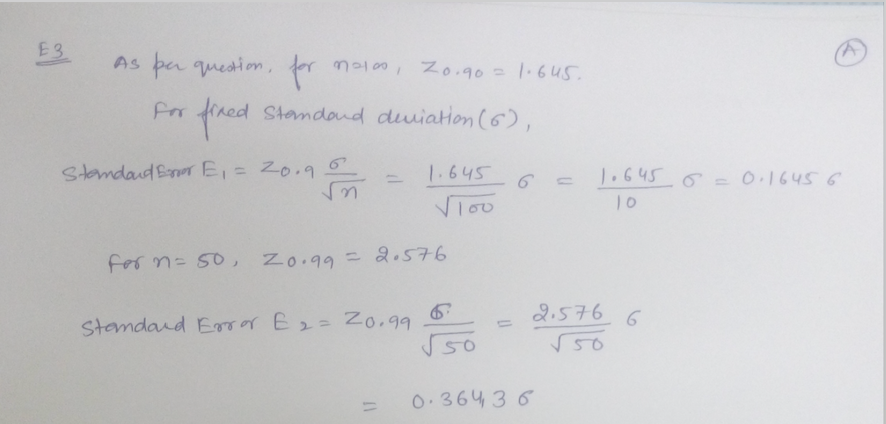 E3
A
As per question, for n=100, Z0.90 = 1.645.
For fixed Standard deviation (σ),
Standard Error E1 = Z0.9 σ/√n = 1.645/√100 σ = 1.645/10 σ = 0.1645 σ
For n = 50, Z0.99 = 2.576
Standard Error E2 = Z0.99 σ/√50 = 2.576/√50 σ
= 0.3643 σ